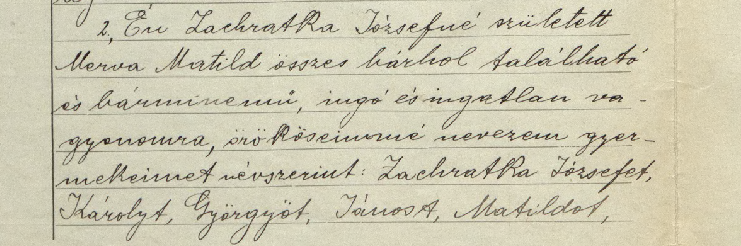 2, Én Zachratka Józsefné született
Merva Matild összes bárhol található
és bárminemű, ingó és ingatlan va-
gyonomra, örököseimmé nevezem gyer-
mekeimet névszerint: Zachratka Józsefet,
Károlyt, Györgyöt, Jánost, Matildot,